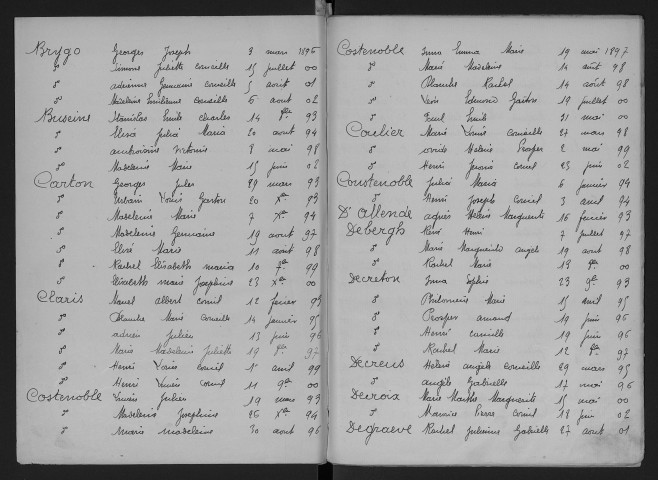 Brygo Georges Joseph 3 mars 1896
d° Simone Juliette Corneille 15 juillet 00
d° Adrienne Germaine Corneille 5 aout 01
d° Madeleine Emilienne Corneille 6 aout 02
Buseine Stanislas Emile Charles 14 8bre 93
d° Elisa Julia Maria 20 aout 94
d° Ambroisine Victorine 8 mai 98
d° Madeleine Marie 15 juin 02
Carton Georges Jules 29 mars 93
d° Urbain Louis Gaston 20 Xbre 93
d° Madeleine Marie 7 Xbre 94
d° Madeleine Germaine 19 aout 97
d° Elise Marie 11 aout 98
d° Rachel Elisabeth Maria 10 7bre 99
d° Elisabeth Marie Josephine 23 Xbre 00
Claris Marcel Albert Cornil 12 fevrier 93
d° Blanche Marie Corneille 14 janvier 95
d° Adrien Julien 13 juin 96
d° Marie Madeleine Juliette 19 8bre 97
d° Henri Louis Cornil 1er avril 99
d° Henri Cornil 11 9bre 00
Costenoble Julien 19 mars 93
d° Madeleine Josephine 26 Xbre 94
d° Marie Madeleine 30 aout 96
Costenoble Irma Emma Marie 19 mai 1897
d° Marie Madeleine 14 août 98
d° Blanche Rachel 14 août 98
d° Edmond Gaston 19 juillet 00
d° Paul Emile 31 mai 00
Coulier Marie Louise Corneille 27 mars 98
d° Ovide Prosper 2 mai 99
d° Henri Cornil 23 juin 02
Coustenoble Julia Maria 6 janvier 94
d° Henri Joseph Cornil 3 avril 94
D'Allende Helene Marguerite 16 fevrier 93
Debergh René Henri 7 juillet 97
d° Marie Marguerite Angele 19 aout 98
d° Rachel Marie 19 8bre 00
Decreton Irma Sophie 23 9bre 93
d° Philomene Marie 15 avril 95
d° Prosper Amand 19 juin 96
d° Henri Camille 19 juin 96
d° Rachel Marie 12 8bre 97
Decreus Helene Angele Corneille 29 mars 95
d° Angele Gabrielle 17 mai 96
Decroix Marie Marthe Marguerite 15 mai 00
d° Maurice Pierre Cornil 18 juin 02
Degraeve Rachel Julienne Gabrielle 27 aout 01